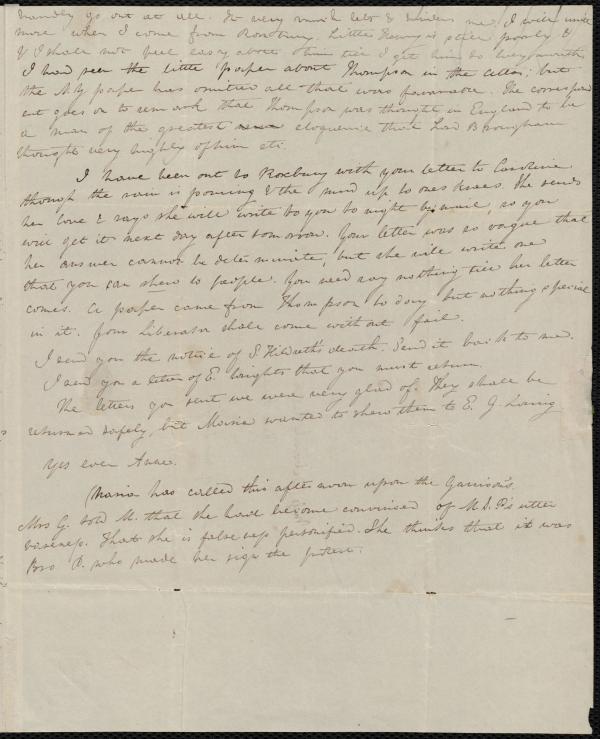 hardly go out at all. It very much lets & hinders me. I will write
more when I come from Roxbury. Little Henry is still poorly &
& I shall not feel easy about him till I get him to Weymouth.
I had seen the little paper about Thompson in the Cellar; but
the N.Y. paper has omitted all that was favorable. The correspond
ent goes on to remark that Thompson was thought in England to be
a man of the greatest eloquence that Lord Brougham
thought very highly of him etc.
I have been out to Roxbury with your letter to Caroline
through the rain is pouring & the mud up to ones knees. She sends
her love & says she will write to you to night by mail, so you
will get it next day after tomorrow. Your letter was so vague that
her answer cannot be determinate, but she will write one
that you can shew to people. You need say nothing till her letter
comes. A paper came from Thompson to day but nothing special
in it. Your Liberator shall come without fail.
I send you the notice of S. Hildreth's death. Send it back to me.
I send you a letter of E. Wrights that you must return.
The letters you sent we were very glad of. They shall be
returned safely, but Maria wanted to shew them to E. G. Loring
Yrs ever Anne.
(Maria has called this afternoon upon the Garrisons.
Mrs G. told M. that she had become convinced of M. S. P's utter
baseness. That she is falseness personified. She thinks that it was
Bro P. who made her sign the protest.